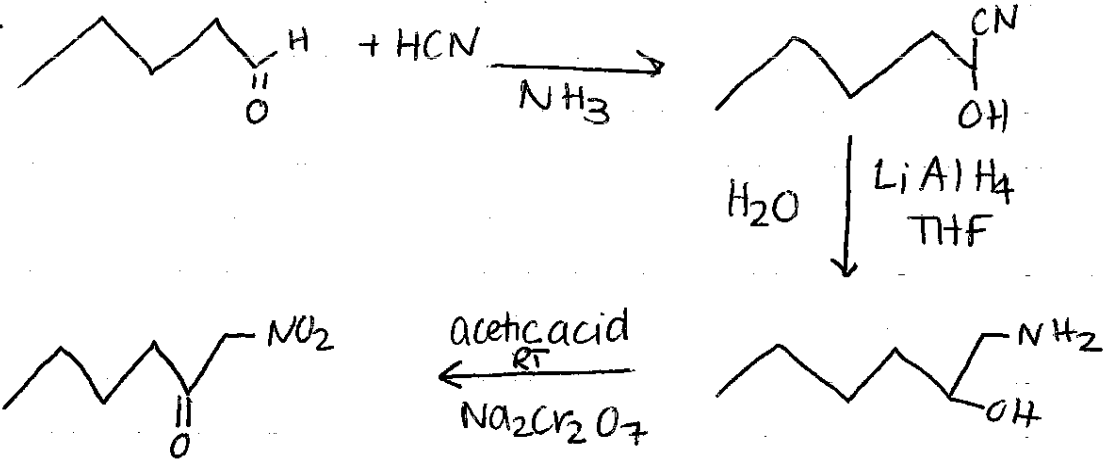 H
+ HCN
NH3
O
CN
OH
H2O
LiAlH4
THF
NO2
O
acetic acid
RT
Na2Cr2O7
NH2
OH